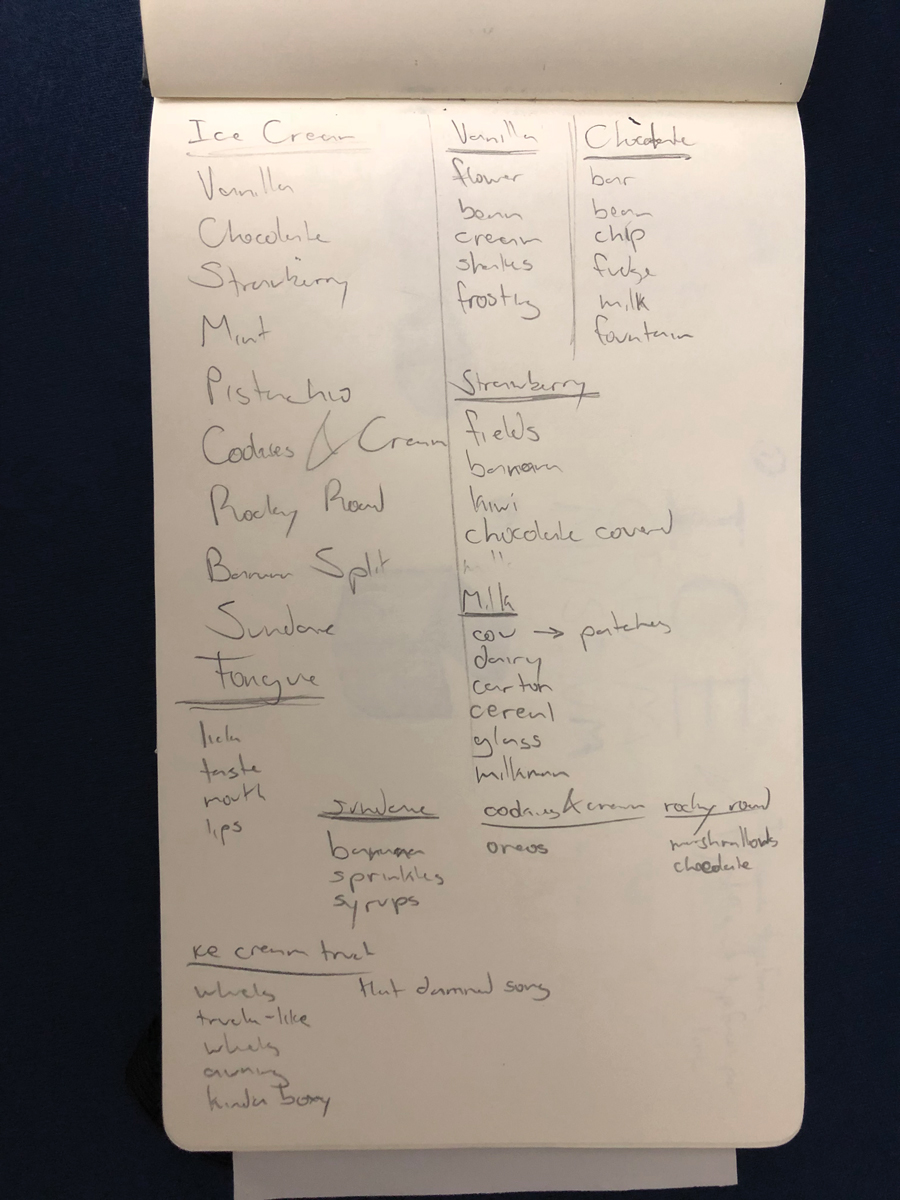 Ice Cream
Vanilla
Chocolate
Strawberry
Mint
Pistachio
Cookies & Cream
Rocky Road
Banana Split
Sundae
Tongue
lick
taste
mouth
lips
Vanilla
flower
bean
cream
shakes
frosting
Chocolate
bar
bean
chip
fudge
milk
fountain
Strawberry
fields
banana
kiwi
chocolate covered
Milk
cow → patches
dairy
carton
cereal
glass
milkman
sundae
banana
sprinkles
syrups
cookies & cream
oreos
rocky road
marshmallows
chocolate
ice cream truck
wheels
truck-like
wheels
awning
kinda boxy
that damned song